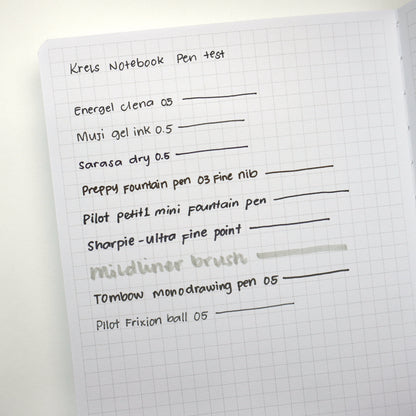 Kreis Notebook Pen test
Energel clena 05
Muji gel ink 0.5
Sarasa dry 0.5
Preppy Fountain pen 03 Fine nib
Pilot Petit1 mini Fountain pen
Sharpie - Ultra Fine point
mildliner brush
Tombow monodrawing pen 05
Pilot Frixion ball 05